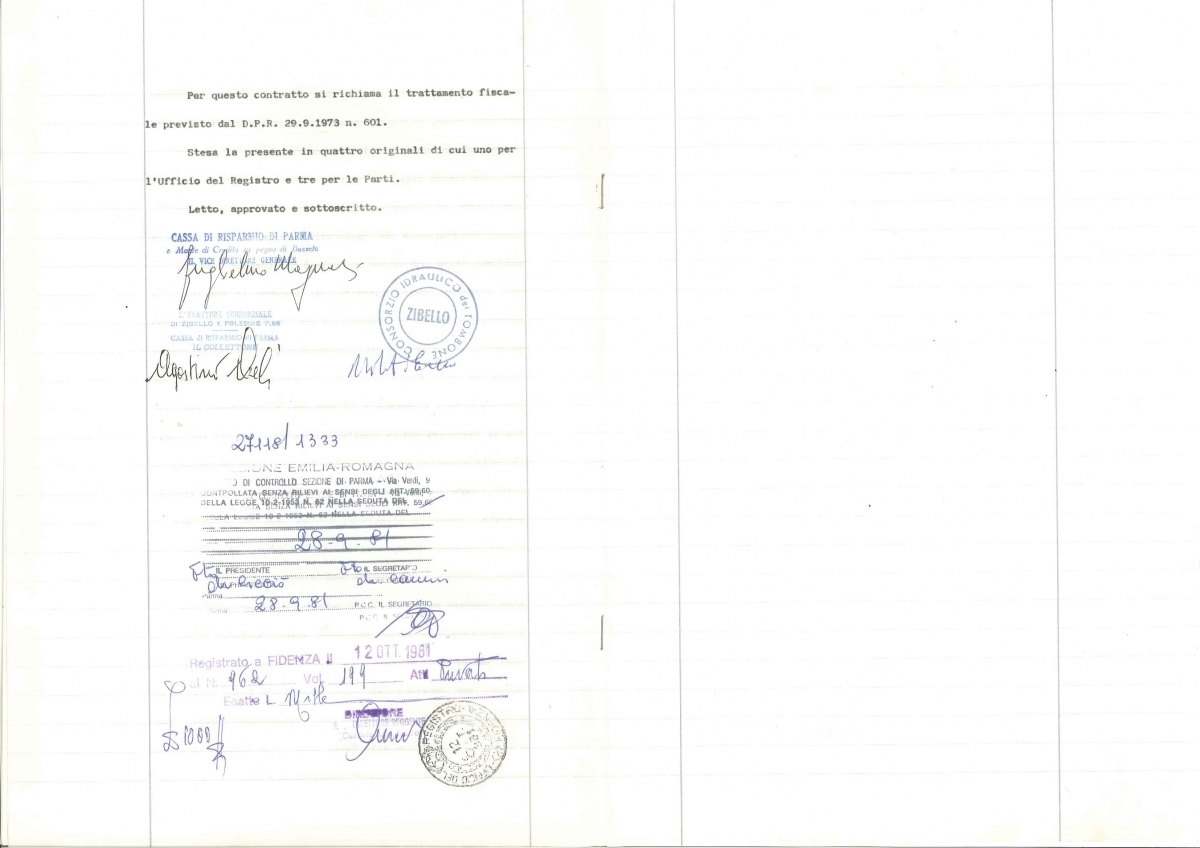 Per questo contratto si richiama il trattamento fisca-
le previsto dal D.P.R. 29.9.1973 n. 601.
Stesa la presente in quattro originali di cui uno per
l'Ufficio del Registro e tre per le Parti.
Letto, approvato e sottoscritto.
CASSA DI RISPARMIO DI PARMA
e Monte di Credito su pegno di Busseto
IL VICE DIRETTORE GENERALE
Guglielmo
CONSORZIO IDRAULICO dei TOMBONE
ZIBELLO
L'ESATTORE CONSORZIALE
DI ZIBELLO E POLESINE P.SE
CASSA di RISPARMIO di PARMA
IL COLLETTORE
Agostino
27118/1333
IONE EMILIA-ROMAGNA
O DI CONTROLLO SEZIONE DI PARMA - Via Verdi, 9
CONTROLLATA SENZA RILIEVI AI SENSI DEGLI ART. 59,60
DELLA LEGGE 10-2-1953 N. 62 NELLA SEDUTA DEL
TA SENZA RILIEVI AI SENSI DEGLI ART. 59,60
LA LEGGE 10-2-1953 N. 62 NELLA SEDUTA DEL
28-9-81
F.to IL PRESIDENTE F.to IL SEGRETARIO
Parma
28-9-81 P.C.C. IL SEGRETARIO
P.C.C. IL S
Registrato a FIDENZA il 12 OTT. 1981
al N. 962 Vol. 199 Atti Privati
Esatte L. Mille
£ 1000
DIRETTORE
UFFICIO DEL REGISTRO